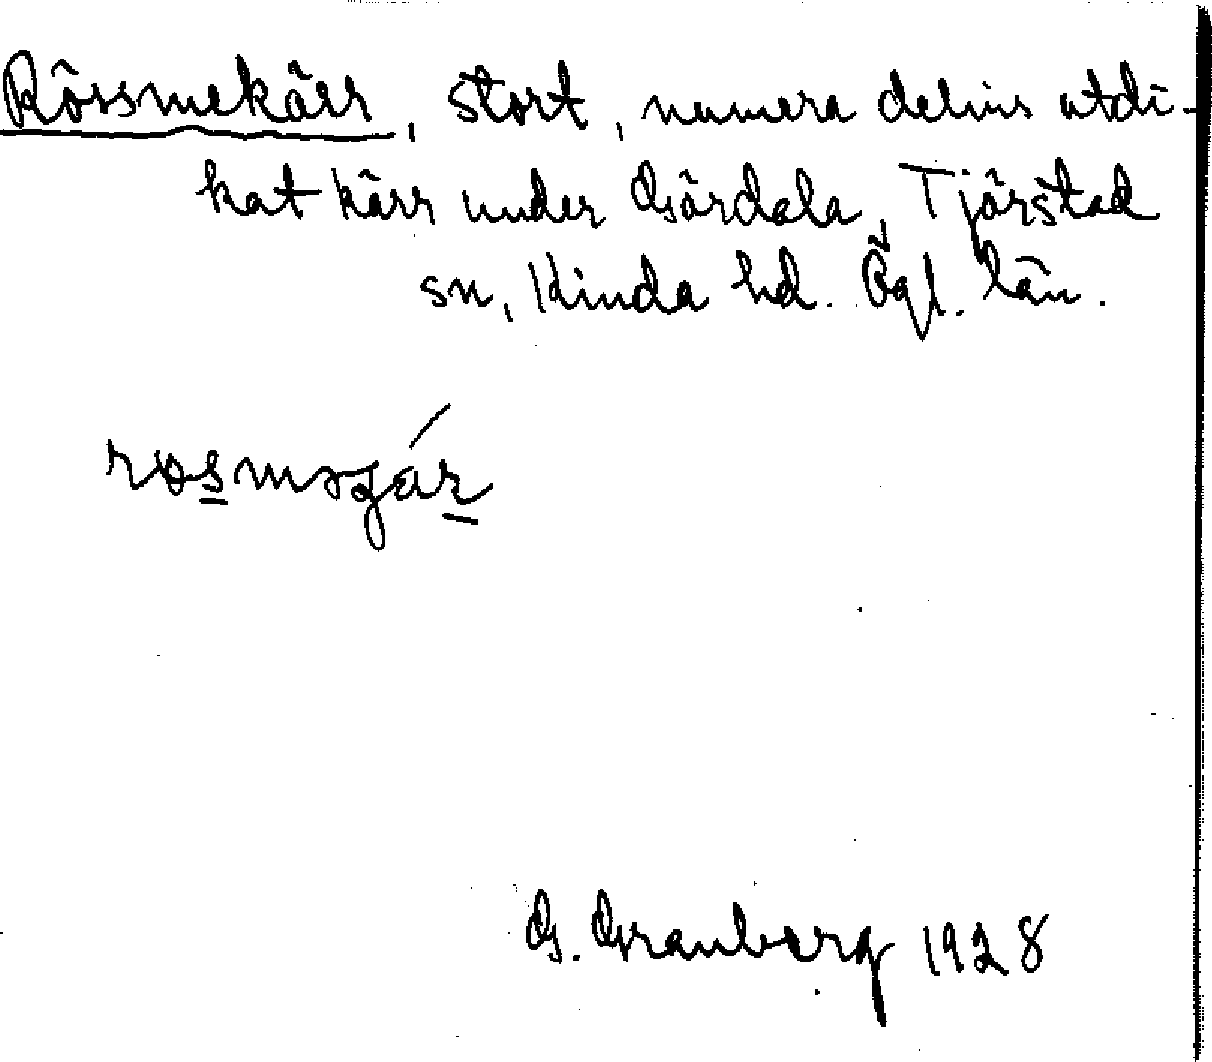 Rössmekärr, stort, numera delvis utdi-
kat kärr under Gärdala, Tjärstad
sn, Kinda hd. Ögl. län.
G. Granberg 1928